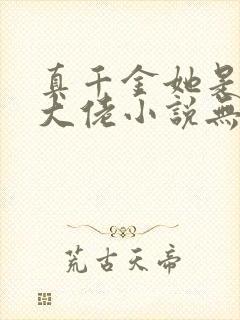 真千金她是
大佬小說無
荒古天帝